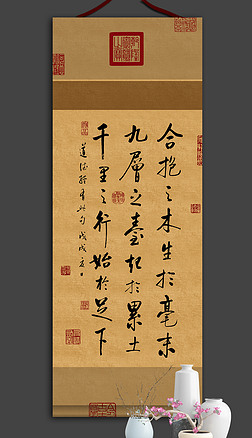 合抱之木生於毫末
九層之臺起於累土
千里之行始於足下
道德經
戊戌